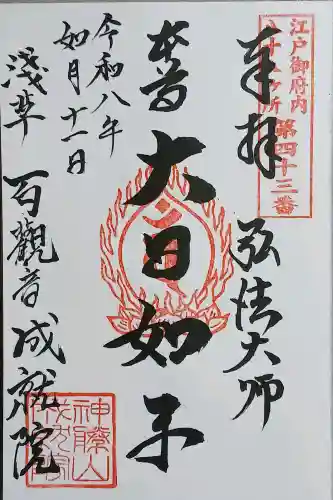 江戸御府内
八十八ヶ所 第四十三番
奉拝
弘法大師
本尊
大日如来
令和八年
如月十一日
浅草 百觀音 成就院
神勝山
成就院